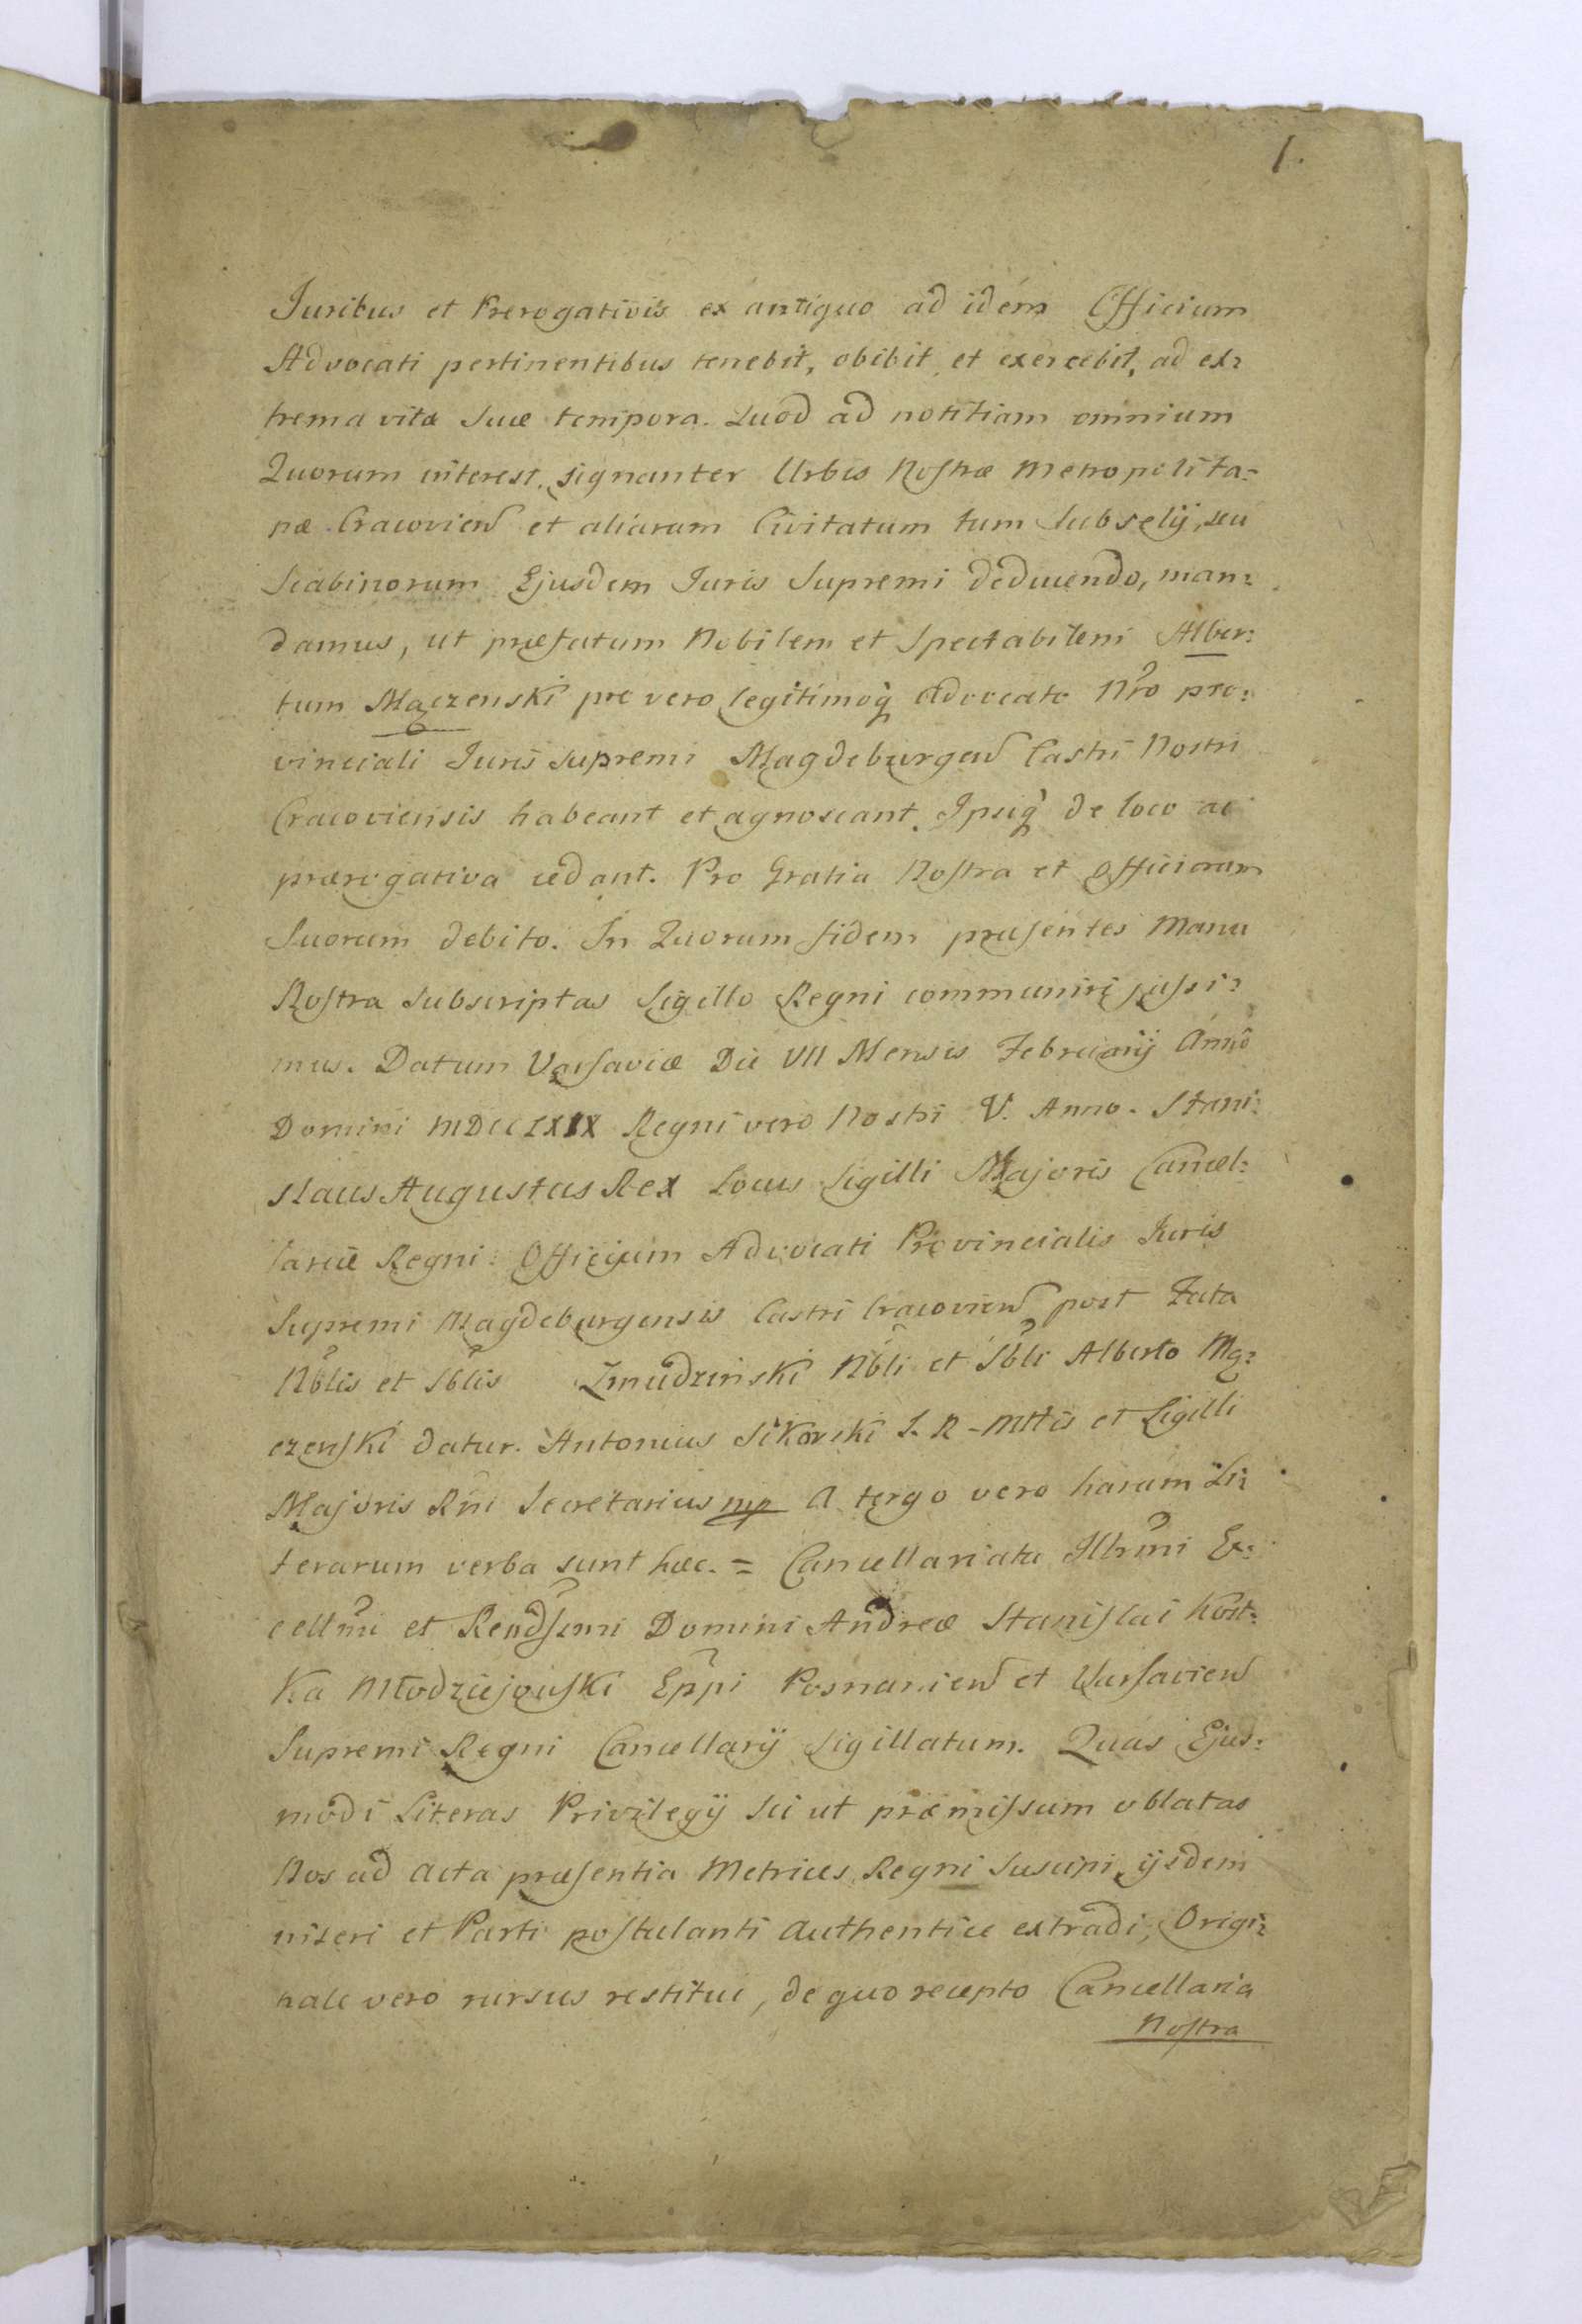 1.
Juribus et Prerogativis ex antiquo ad idem Officium
Advocati pertinentibus tenebit, obibit et exercebit, ad ex:
trema vitæ suæ tempora. Quod ad notitiam omnium
Quorum interest, signanter Urbis Nostræ Metropolita-
næ Cracovien et aliarum Civitatum tum Subselij, seu
Scabinorum Ejusdem Juris Supremi deducendo, man:
damus, ut præfatum Nobilem et Spectabilem Alber:
tum Mączenski pro vero legitimoq Advocato Nro pro:
vinciali Juris supremi Magdeburgen Castri Nostri
Cracoviensis habeant et agnoscant, Ipsiq de loco ac
prærogativa cedant. Pro Gratia Nostra et Officiorum
Suorum debito. In Quorum fidem præsentes Manu
Nostra Subscriptas Sigillo Regni communiri jussi:
mus. Datum Varsaviæ Die VII Mensis Februarij Anno
Domini MDCCLXIX Regni vero Nostri V. Anno. Stani:
slaus Augustus Rex Locus Sigilli Majoris Cancel:
lariæ Regni: Officium Advocati Provincialis Juris
Supremi Magdeburgensis Castri Cracovien post Fata
Nblis et Sblis Zmudzinski Nbli et Sbli Alberto Mą:
czenski datur. Antonius Sikorski S. R - Mttis et Sigilli
Majoris Rni Secretarius mp A tergo vero harum Li:
terarum verba sunt hæc. = Cancellariatu Illrmi Ex:
cellmi et Rendssimi Domini Andreæ Stanislai Kost:
ka Młodziejouski Eppi Posnanien et Varsavien
Supremi Regni Cancellarij Sigillatum. Quas Ejus:
modi Literas Privilegij sic ut præmissum oblatas
Nos ad Acta præsentia Metrices Regni Suscipi, ijsdem
inseri et Parti postulanti Authentice extradi, Origi:
nale vero rursus restitui, de quo recepto Cancellaria
Nostra